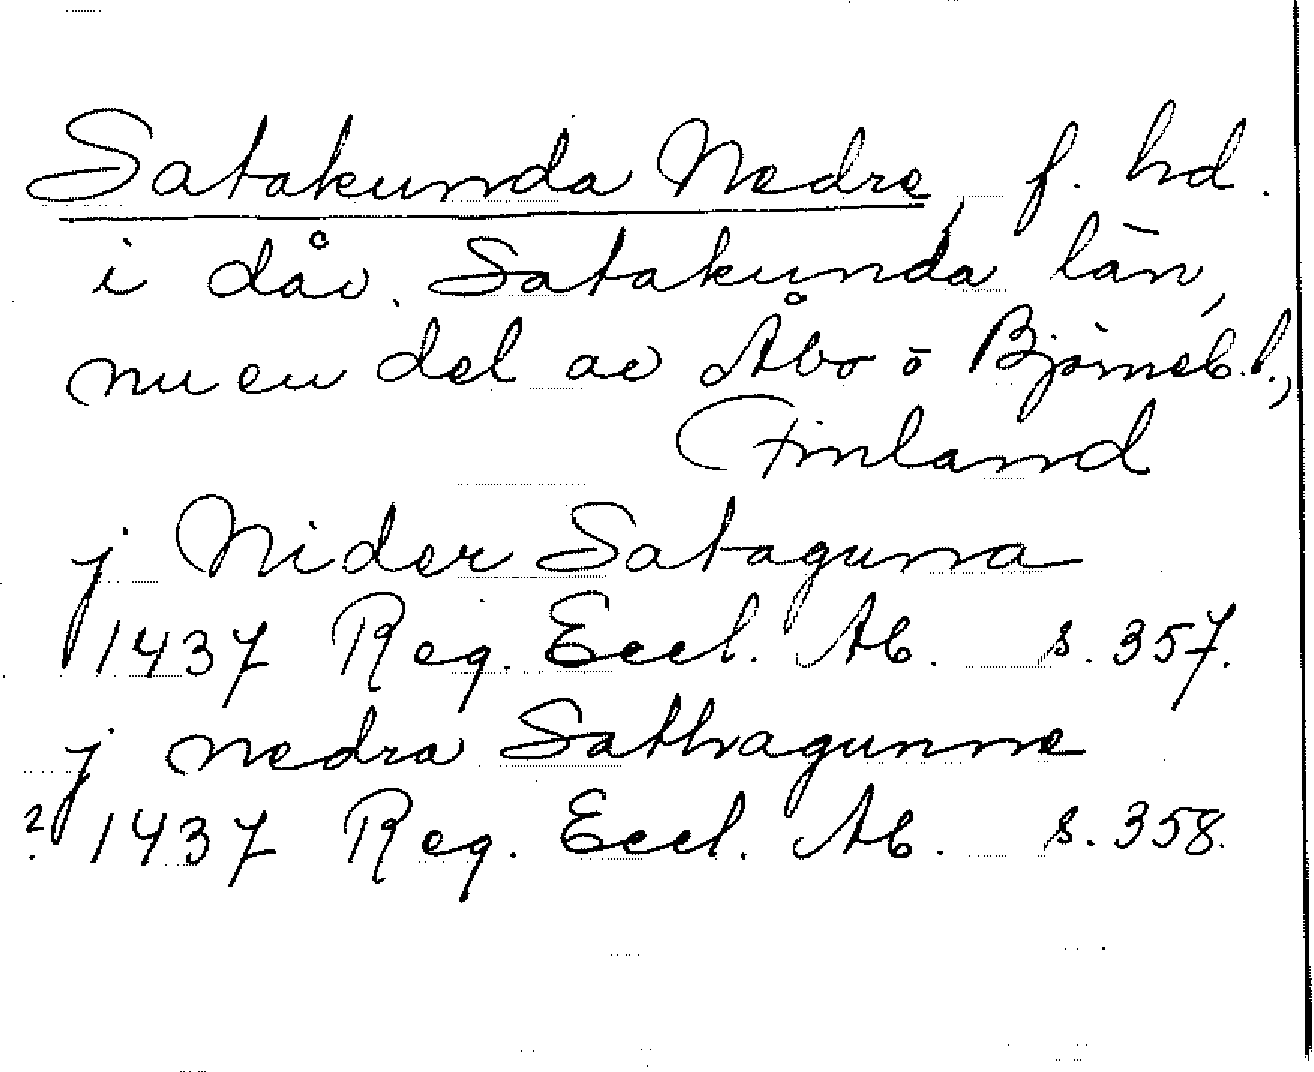 Satakunda Nedre, f. hd.
i dåv. Satakunda län,
nu en del av Åbo o Björneb. l.,
Finland
j Nider Satagunna
1437 Reg. Eccl. Ab. s. 357.
j nedra Sathagunne
? 1437 Reg. Eccl. Ab. s. 358.